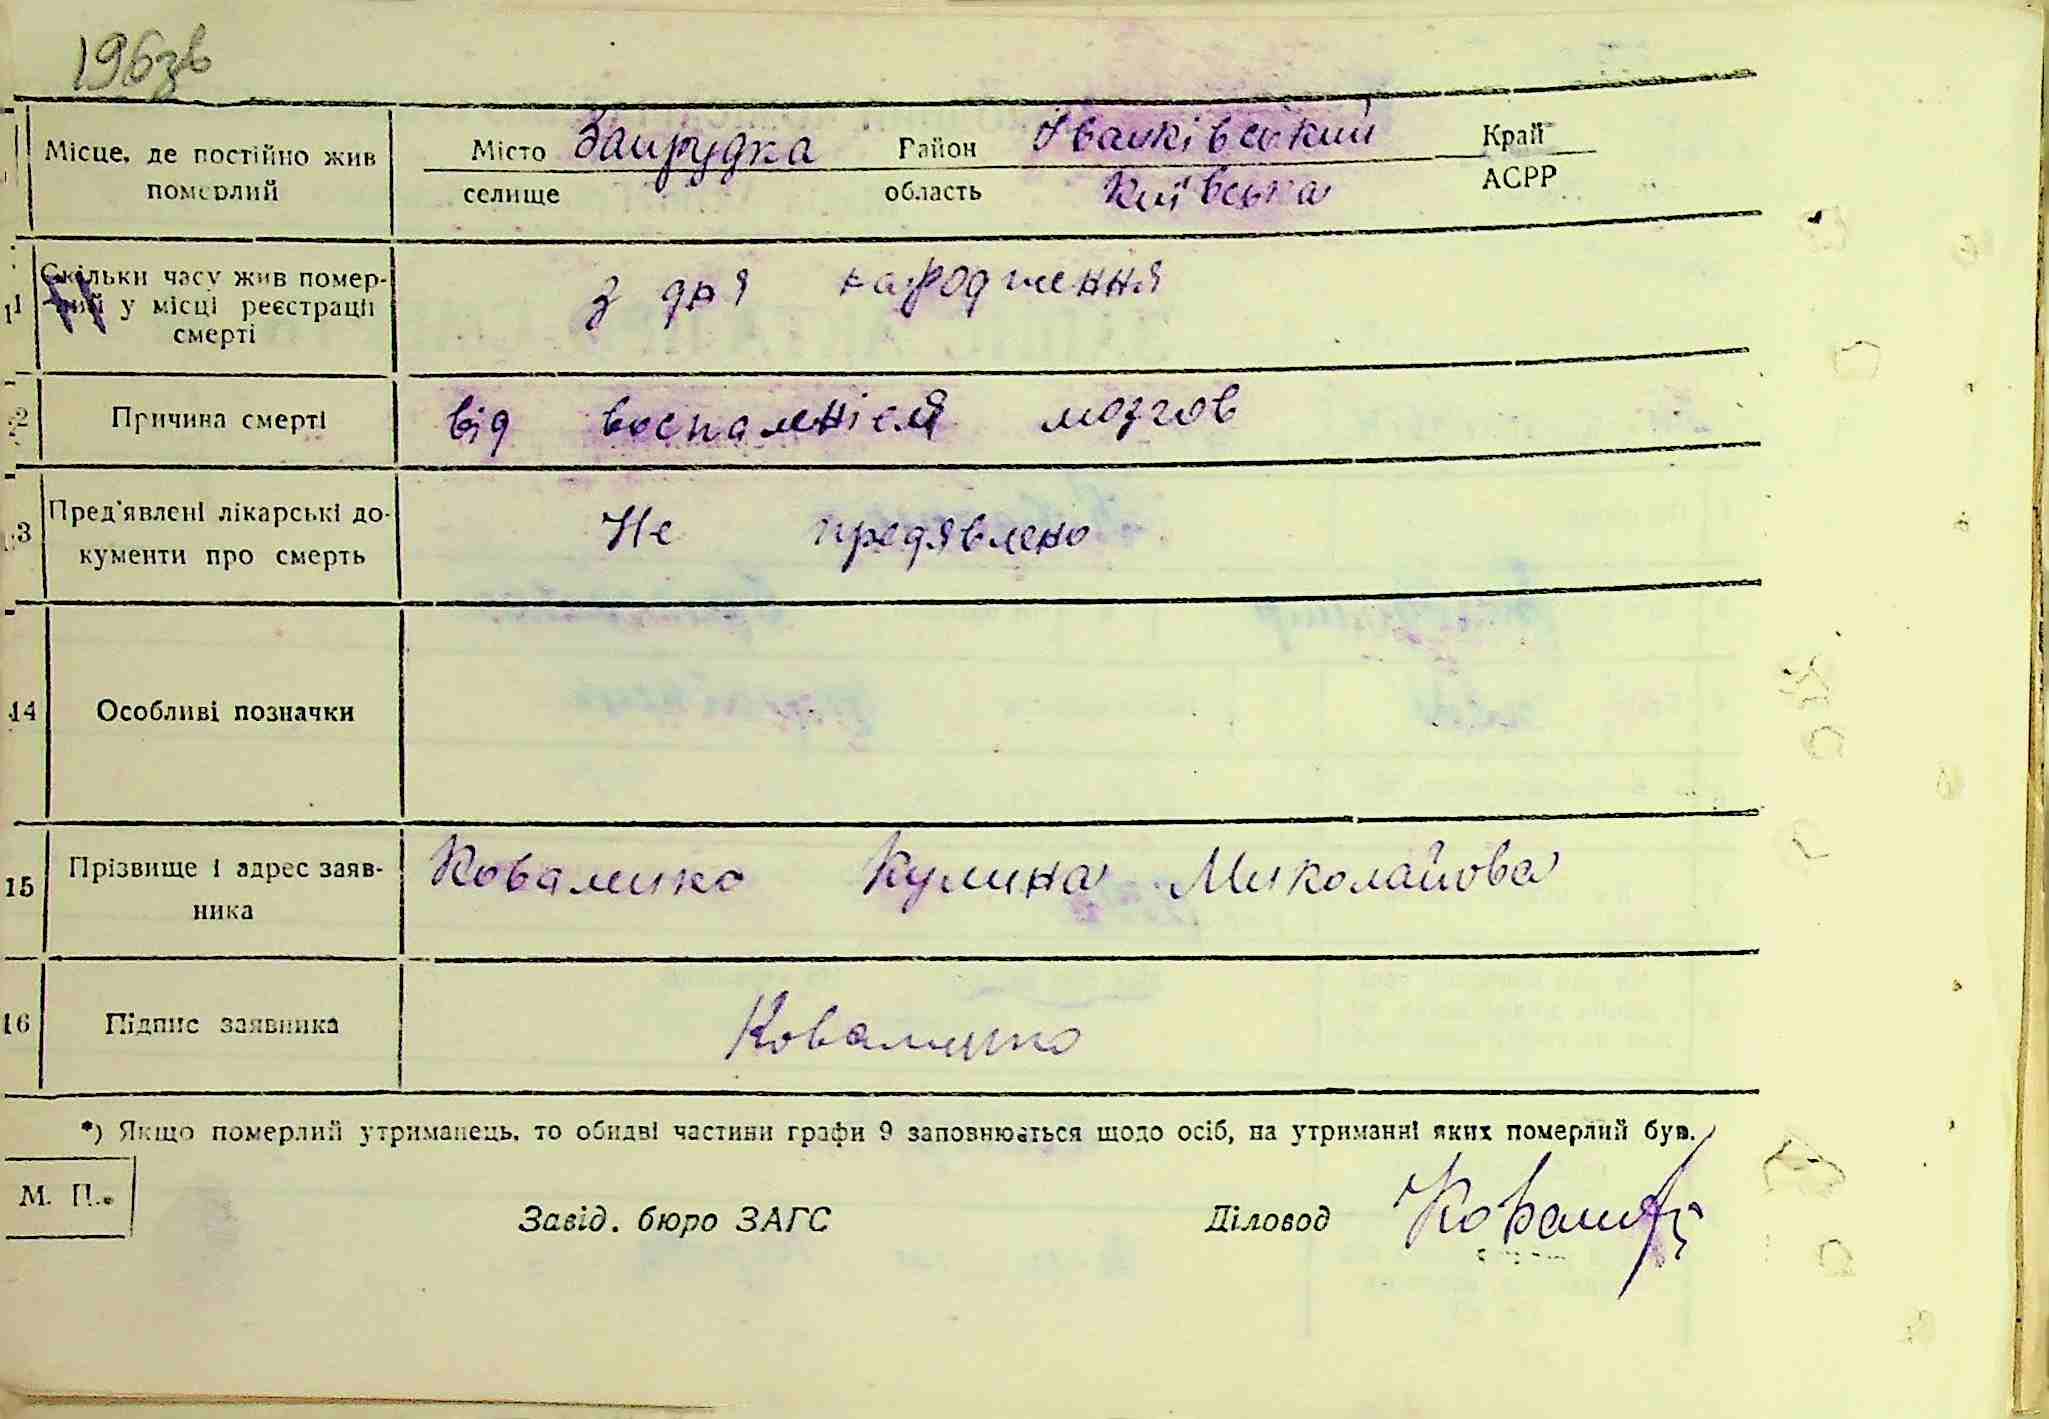 196зв
Місце, де постійно жив
померлий
Місто Запрудка Район Іванківський Край
селище область Київська АСРР
11 Скільки часу жив помер-
лий у місці реєстрації
смерті
з дня народження
12 Причина смерті від воспаленієм мозгов
13 Пред'явлені лікарські до-
кументи про смерть
Не предявлено
14 Особливі позначки
15 Прізвище і адрес заяв-
ника
Коваленко Кулина Миколайова
16 Підпис заявника Коваленко
*) Якщо померлий утриманець, то обидві частини графи 9 заповнюється щодо осіб, на утриманні яких померлий був.
М. П.
Завід. бюро ЗАГС Діловод